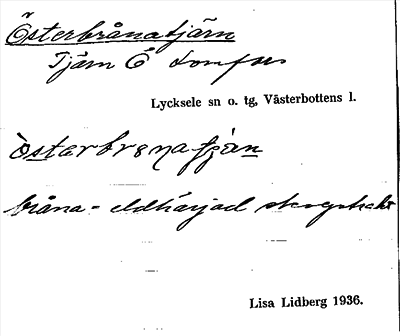 Österbrånatjärn
Tjärn Ö
Lycksele sn o. tg, Västerbottens l.
òstarbrɘnatjàn
bråna = eldhärjad skogstrakt
Lisa Lidberg 1936.